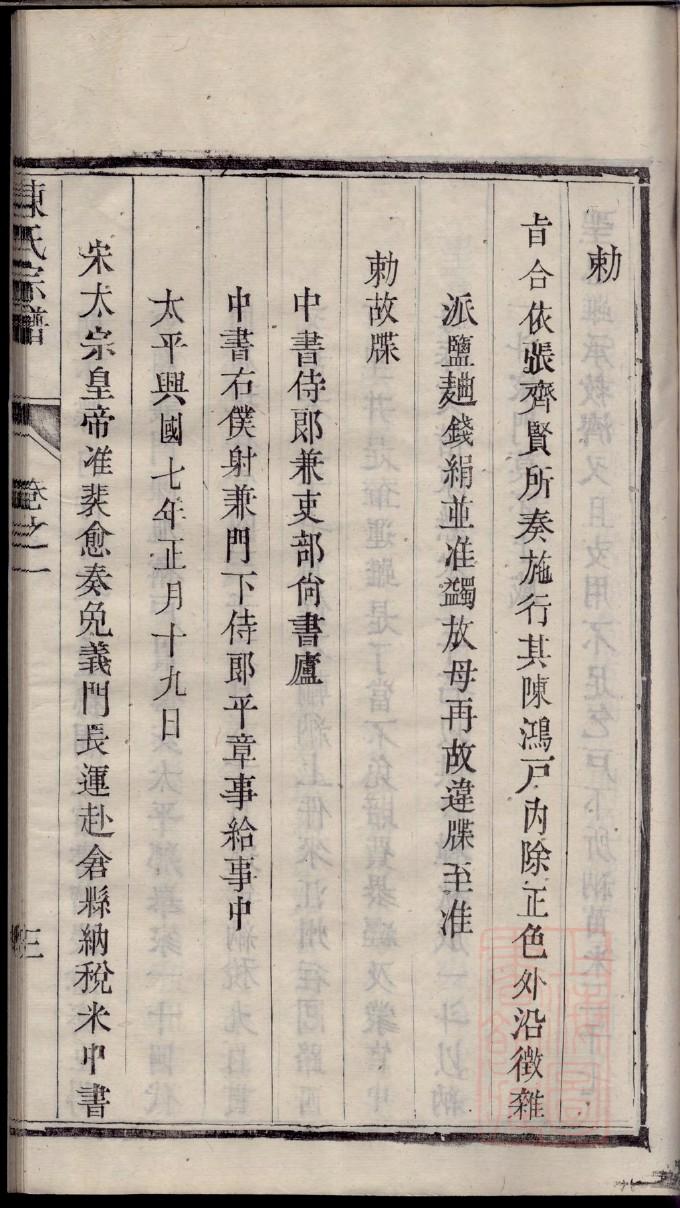 勅
旨合依張齊賢所奏施行其陳鴻戸內除正色外沿徵雜
派鹽麯錢絹並准蠲放毋再故違牒至准
勅故牒
中書侍郎兼吏部尙書廬
中書右僕射兼門下侍郎平章事給事中
太平興國七年正月十九日
宋太宗皇帝准裴愈奏免義門長運赴倉縣納稅米中書
陳氏宗譜
卷之一
三